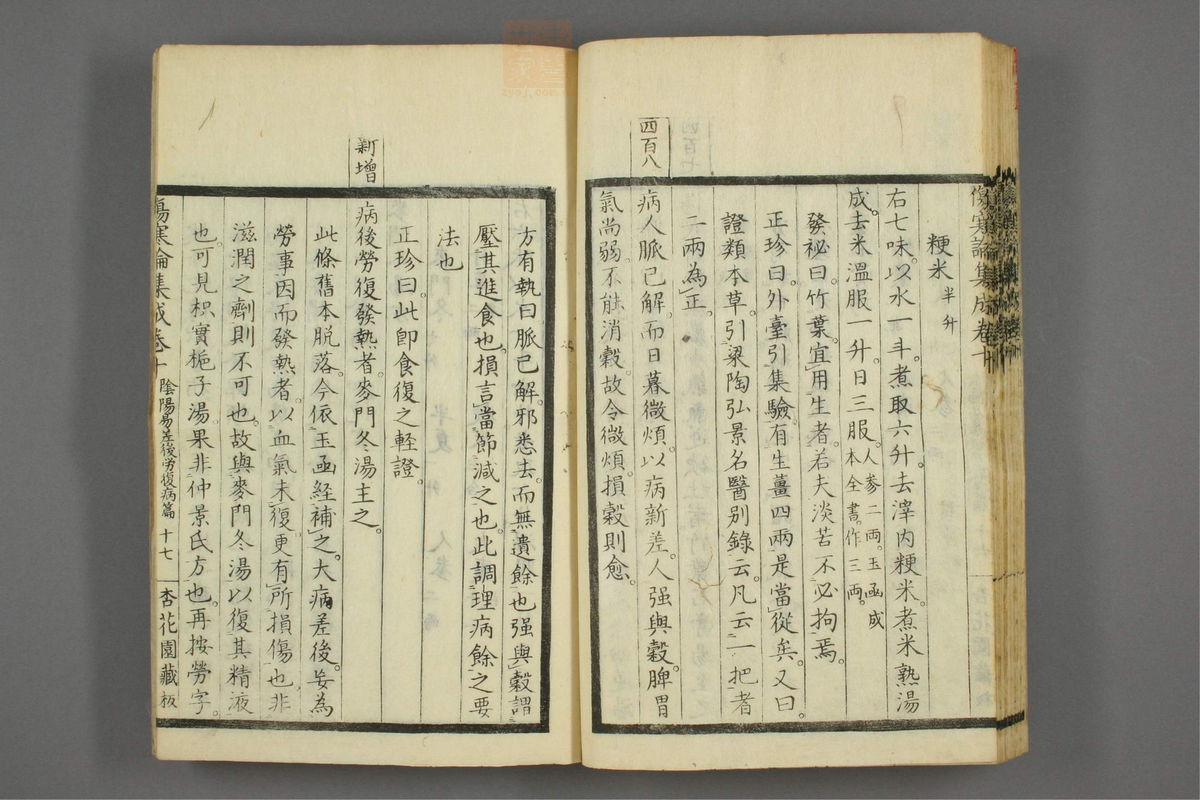 傷寒論集成卷十
粳米半升
右七味。以水一斗。煮取六升。去滓。內粳米。煮米熟湯
成。去米溫服一升。日三服。人參二兩。玉函成本全書。作三兩。
發祕曰。竹葉宜用生者。若夫淡苦不必拘焉。
正珍曰。外臺引集驗。有生薑四兩。是當從矣。又曰。
證類本草。引梁陶弘景名醫別錄云。凡云一把者
二兩為正。
四百八
病人脈已解。而日暮微煩。以病新差。人強與穀。脾胃
氣尚弱。不能消穀。故令微煩。損穀則愈。
方有執曰。脈已解。邪悉去。而無遺餘也。强與穀。謂
壓其進食也。損言當節減之也。此調理病餘之要
法也
正珍曰。此卽食復之輕證。
新增
病後勞復發熱者。麥門冬湯主之。
此條舊本脫落。今依玉函經補之。大病差後。妄為
勞事。因而發熱者。以血氣未復。更有所損傷也。非
滋潤之劑則不可也。故與麥門冬湯以復其精液
也。可見枳實梔子湯。果非仲景氏方也。再按勞字。
傷寒論集成卷十
陰陽易差後勞復病篇
十七
杏花園藏板